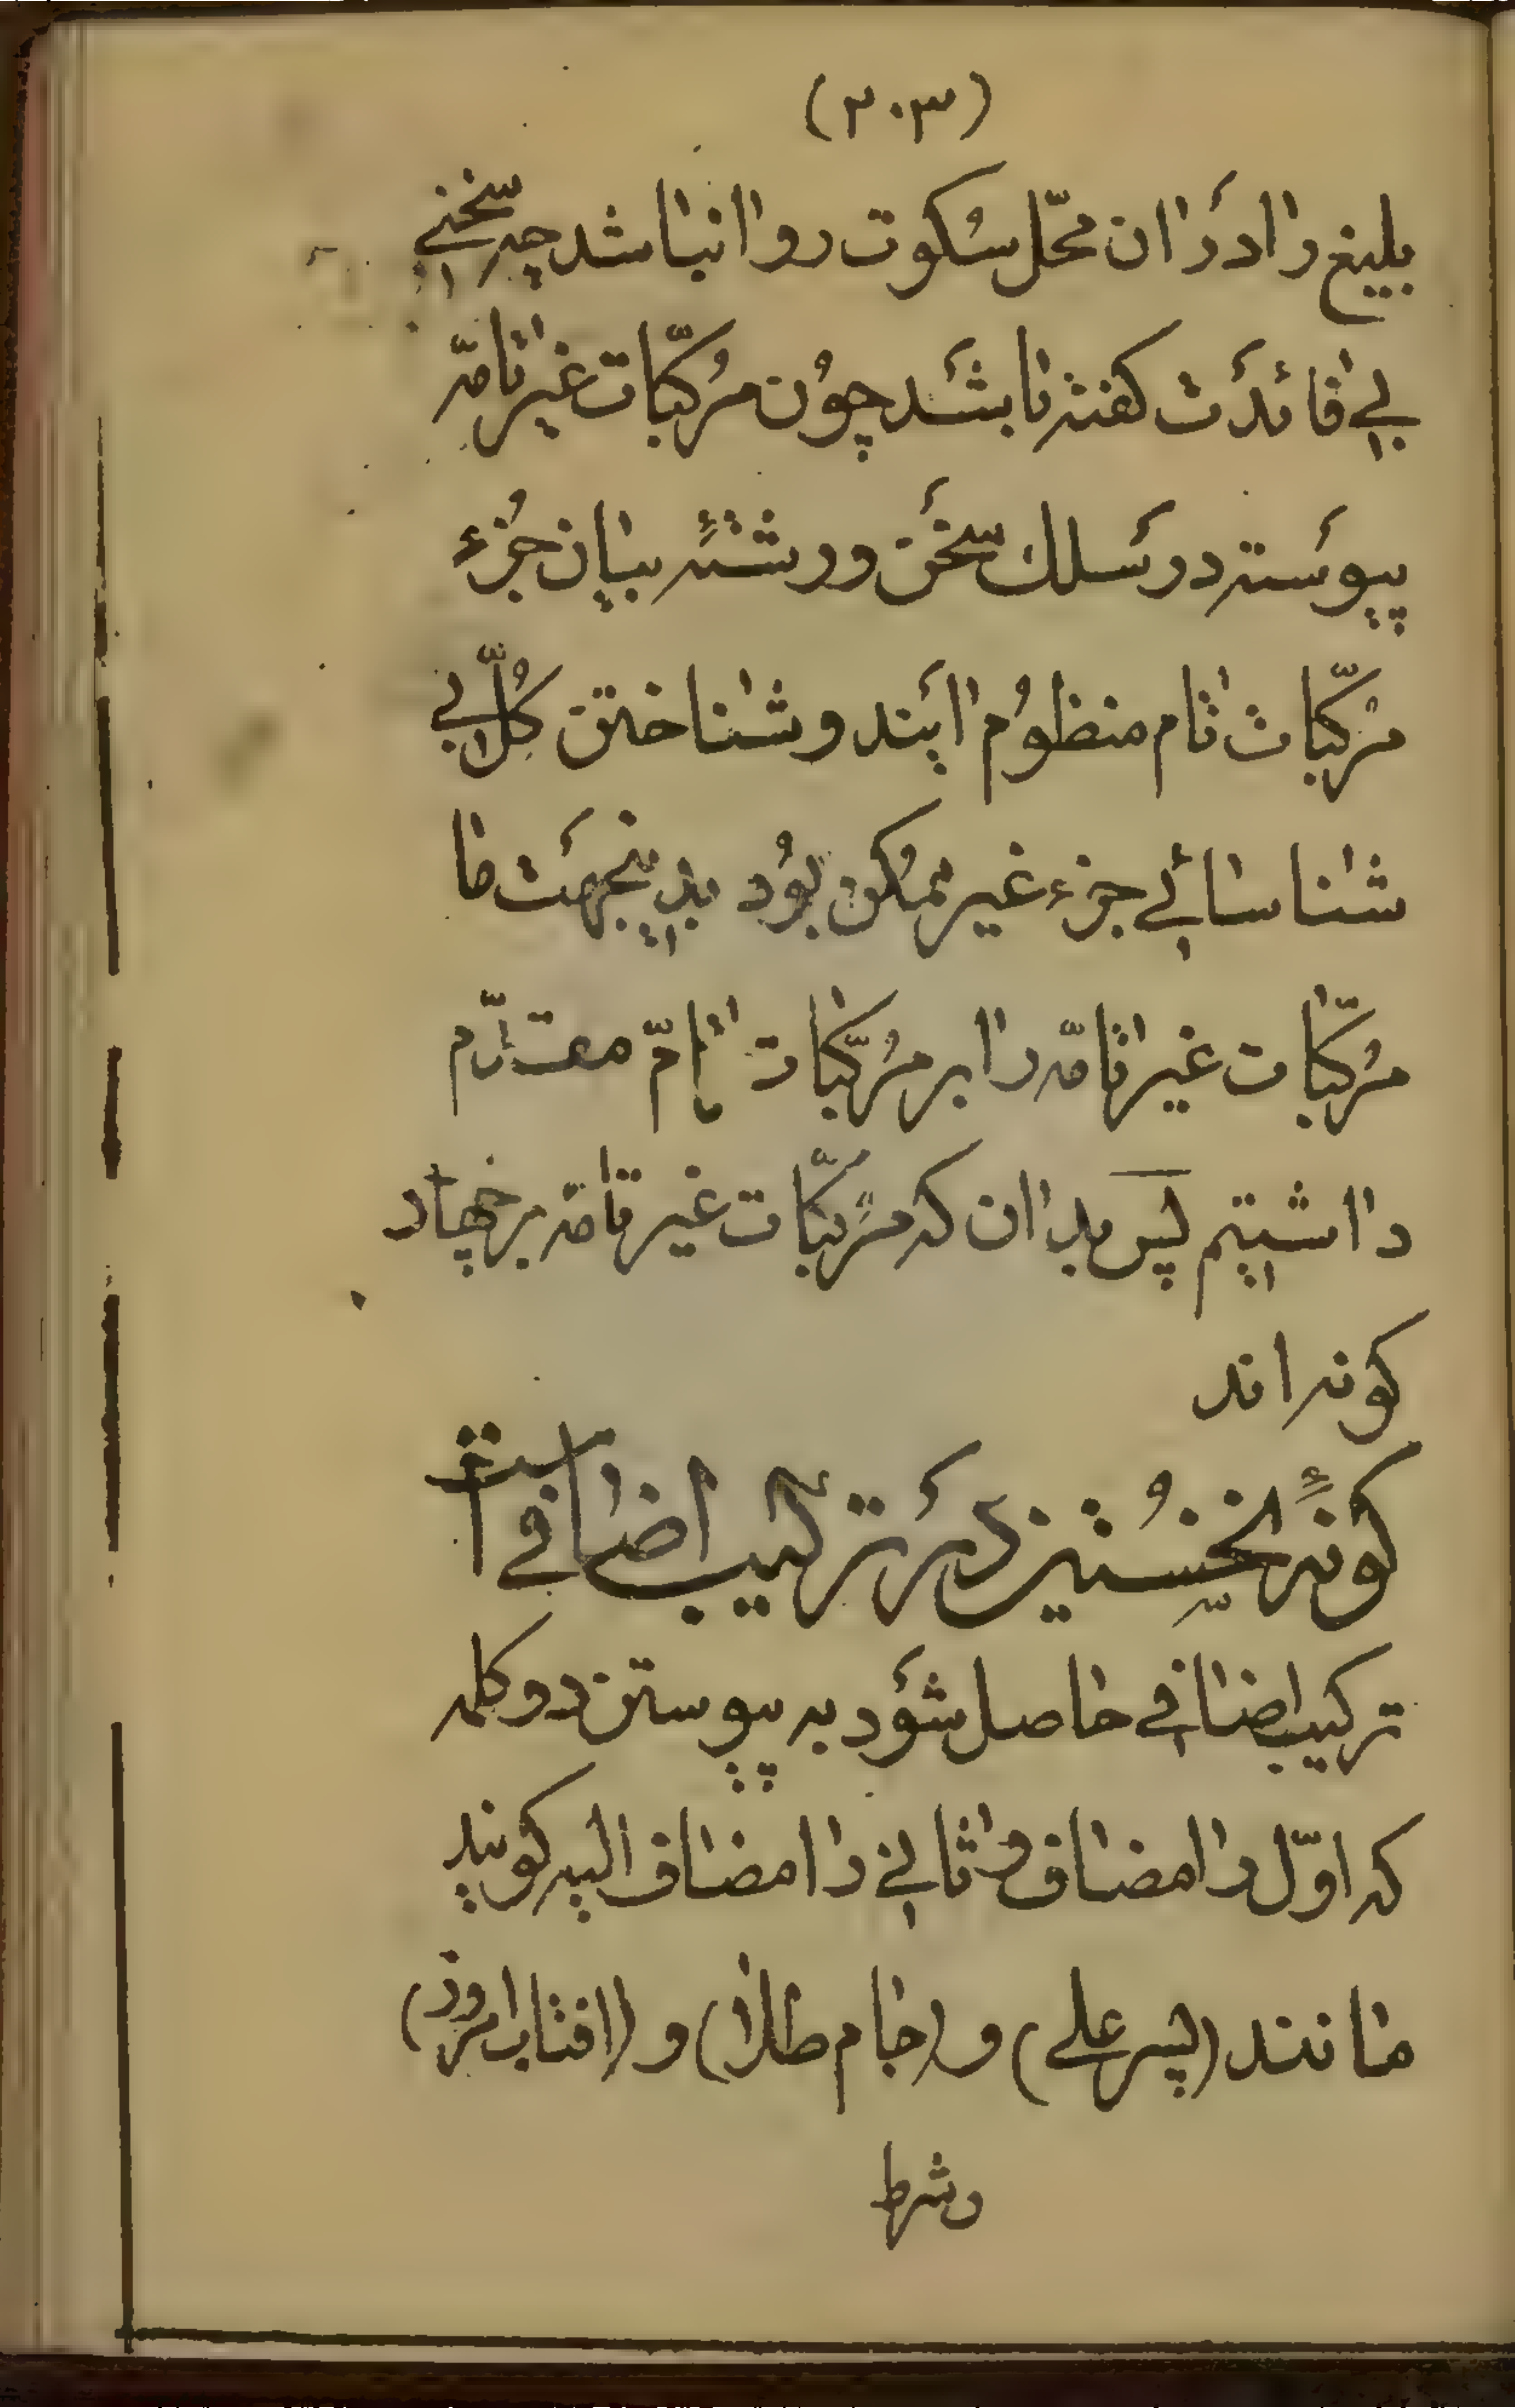 (۲۰۳)
بلیغ را دَر اٰن محّل سُکوت روا نباشد چه سخنے
بے فائدَت کفته نابشَد چوُن مُرکّبات غیر تامّه
پیوَسته در سَلك سخَن و رشتهٔ بیان جُزء
مرکّبات تام منظوُم اٰیَند و شناختن کُلّ بے
شناسائے جزء غیر ممکُن بوُد بدینجهَت ما
مُرکّبات غیر تامّه را بر مُرکّبات تامّ مقدّم
داشتیم پس بدان که مُرکّبات غیر تامّه بر چهار
کونه اند
کونهٔ نخسُتین دَر ترکیب اضافے است
ترکیب اضافے حاصل شوَد به پیوستن دو کلمه
که اوّل را مضاف و ثانے را مضاف الیه کویند
مانند (پسر علے) و (جام طلا) و (اٰفتاب امروز)
وشرط